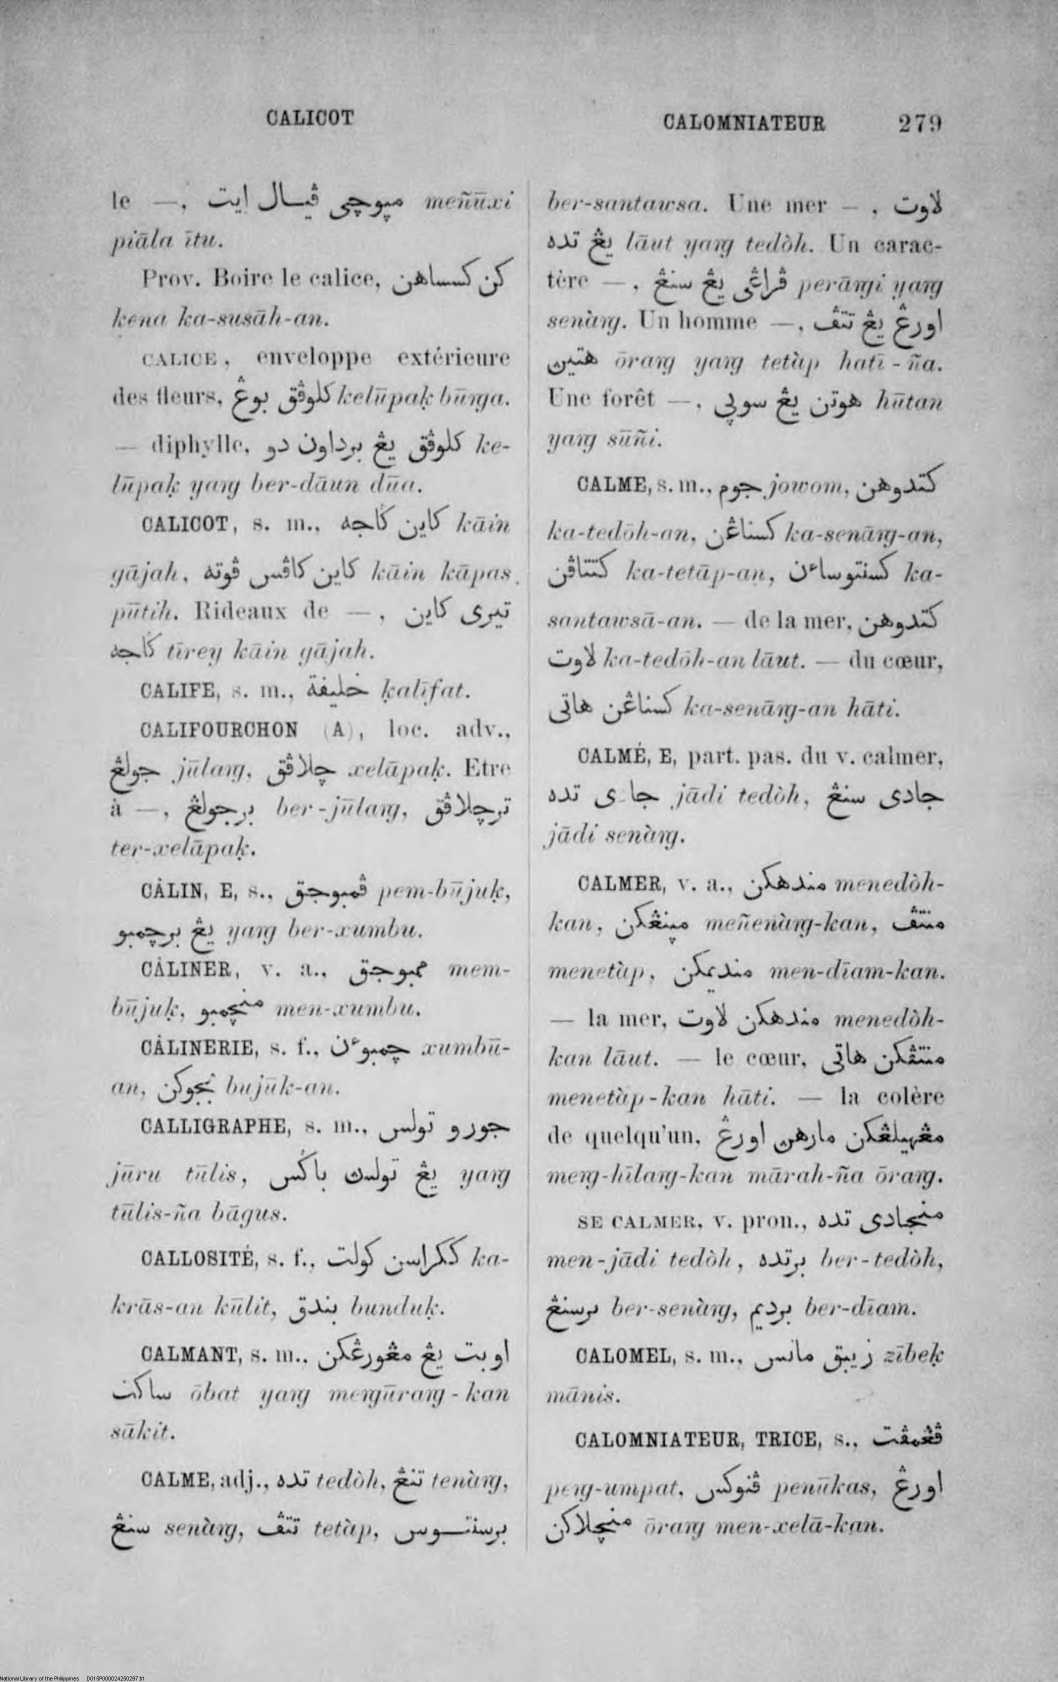 CALICOT
CALOMNIATEUR 279
le —, مڽوچي ڤيــال ايت meñūxi
piāla ītu.
Prov. Boire le calice, كن كسساهن
kena ka-susāh-an.
CALICE, enveloppe extérieure
des fleurs, كلوڤق بوڠ kelūpaḳ būnga.
— diphylle, كلوڤق يڠ برداون دو ke-
lūpaḳ yang ber-dāun dūa.
CALICOT, s. m., كاين ڬاجه kāin
gājah, كاين كاڤس ڤوته kāin kāpas
pūtih. Rideaux de —, تيرى كاين
ڬاجه tīrey kāin gājah.
CALIFE, s. m., خليفة ḳalīfat.
CALIFOURCHON (A), loc. adv.,
جولڠ jūlang, چلاڤق xelāpaḳ. Etre
à —, برجولڠ ber-jūlang, ترچلاڤق
ter-xelāpaḳ.
CÂLIN, E, s., ڤمبوجق pem-būjuḳ,
يڠ برچمبو yang ber-xumbu.
CÂLINER, v. a., ممبوجق mem-
būjuḳ, منچمبو men-xumbu.
CÂLINERIE, s. f., چمبوءن xumbū-
an, بجوكن bujūk-an.
CALLIGRAPHE, s. m., جورو تولس
jūru tūlis, يڠ تولسڽ باڬس yang
tūlis-ña bāgus.
CALLOSITÉ, s. f., ككراسن كولت ka-
krās-an kūlit, بندق bunduḳ.
CALMANT, s. m., اوبت يڠ مڠورڠكن
ساكت ōbat yang mengūrang-kan
sākit.
CALME, adj., تده tedòh, تنڠ tenàng,
سنڠ senàng, تتڤ tetàp, برسنتــوس
ber-santawsa. Une mer —, لاوت
يڠ تده lāut yang tedòh. Un carac-
tère —, ڤراڠى يڠ سنڠ perāngi yang
senàng. Un homme —, اورڠ يڠ تتڤ
هتين ōrang yang tetàp hati-ña.
Une forêt —, هوتن يڠ سوڽي hūtan
yang sūñi.
CALME, s. m., جوم jowom, كتدوهن
ka-tedōh-an, كسناڠن ka-senāng-an,
كتتاڤن ka-tetāp-an, كسنتوساءن ka-
santawsā-an. — de la mer, كتدوهن
لاوت ka-tedōh-an lāut. — du cœur,
كسناڠن هاتى ka-senāng-an hāti.
CALMÉ, E, part. pas. du v. calmer,
جادى تده jādi tedòh, جادى سنڠ
jādi senàng.
CALMER, v. a., مندهكن menedòh-
kan, مڽنڠكن meñenàng-kan, منتڤ
menetàp, منديمكن men-dīam-kan.
— la mer, مندهكن لاوت menedòh-
kan lāut. — le cœur, منتڤكن هاتي
menetàp-kan hāti. — la colère
de quelqu'un, مڠهيلڠكن مارهن اورڠ
meng-hīlang-kan mārah-ña ōrang.
SE CALMER, v. pron., منجادى تده
men-jādi tedòh, برتده ber-tedòh,
برسنڠ ber-senàng, برديم ber-dīam.
CALOMEL, s. m., زيبق مانس zībeḳ
mānis.
CALOMNIATEUR, TRICE, s., ڤڠمڤت
peng-umpat, ڤنوكس penūkas, اورڠ
منچلاكن ōrang men-xelā-kan.
National Library of the Philippines